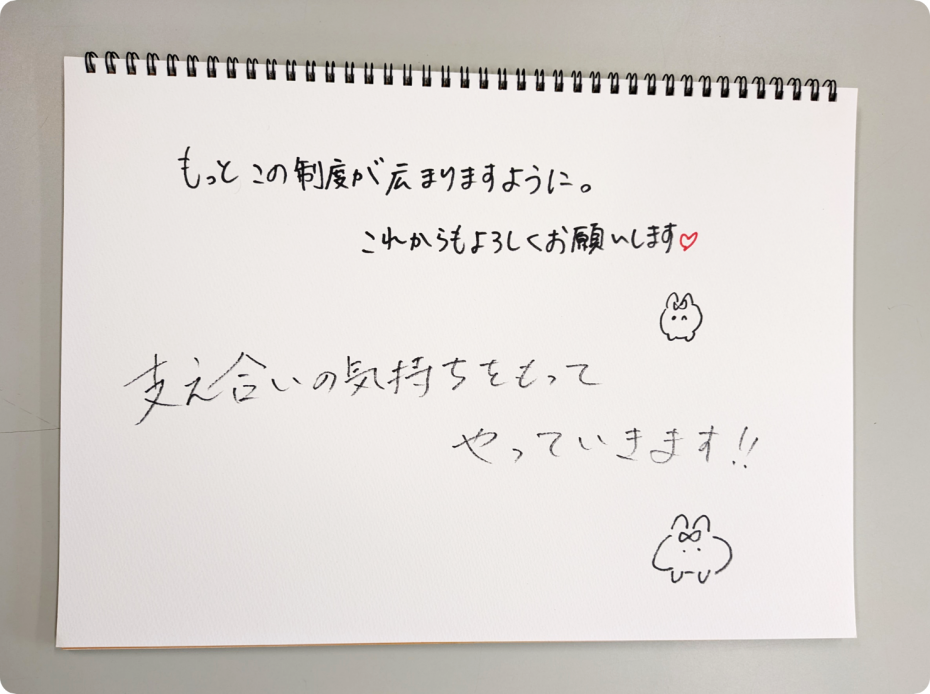 もっとこの制度が広まりますように。
これからもよろしくお願いします♡
支え合いの気持ちをもって
やっていきます!!